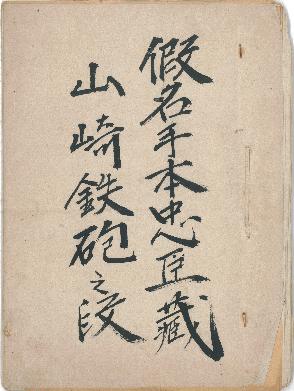 假名手本忠臣藏
山崎鉄砲之段